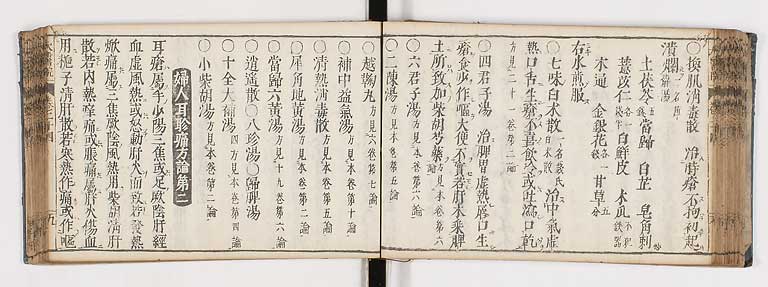 ○換肌消毒散 治時瘡不拘初起
潰爛
土茯苓 當歸 白芷 皂角刺
薏苡仁 白鮮皮 木瓜
木通 金銀花 甘草
右水煎服
○七味白术散 治中氣虛
熱口舌生瘡不喜飲冷或吐瀉口乾
方見二十一卷第二論
○四君子湯 治脾胃虛熱唇口生
瘡食少作嘔大便不實若肝木乘脾
土所致加柴胡芍藥 方見本卷第六
○六君子湯 方見本卷第六論
○二陳湯 方見本卷第五論
○越鞠丸 方見六卷第七論
○補中益氣湯 方見本卷第十論
○清熱消毒散 方見本卷第一論
○犀角地黃湯 方見本卷第二論
○當歸六黃湯 方見十九卷第六論
○逍遙散○八珍湯○歸脾湯
○十全大補湯 四方見本卷第四論
○小柴胡湯 方見本卷第二論
婦人耳眕痛方論第二
耳瘡屬手少陽三焦或足厥陰肝經
血虛風熱或怒動肝火而致若發熱
焮痛屬三焦厥陰風熱用柴胡清肝
散若內熱痒痛或脹痛屬肝火傷血
用梔子清肝散若寒熱作痛或作嘔